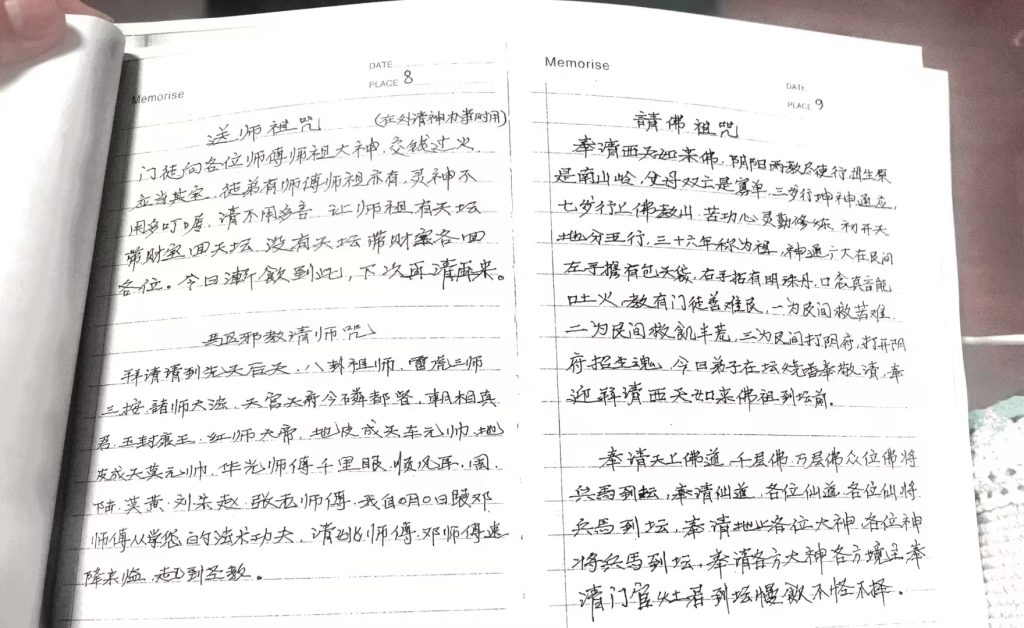 Memorise
DATE
PLACE 8
送师祖咒 (在外请神办事时用)
门徒向各位师傅师祖大神.交钱过火.
立当其宝.徒弟有师傅师祖亦有.灵神不
用多叮嘱.请不用多吾.让师祖有天坛
带财宝回天坛.没有天坛带财宝各回
各位。今日漸飲到此,下次再请再来。
驱邪教请师咒
拜请请到先天后天.八卦祖师.雷虎三师
三按.諸师大法.天宫天府今 都督.朝相真
君.玉封康王.红师天帝.地皮成天车元帅.地
皮成天莫元帅.华光师傅千里眼.顺风耳.周.
陆.莫黄.刘朱赵.张老师傅.我自0月0日跟邓
师傅从学您的法术功夫,请 师傅.邓师傅速
降来临.赶到圣教。
Memorise
DATE
PLACE 9
請佛祖咒
奉请西天如来佛,阴阳两教尽使行,出生原
是南山岭,父母双亡是寡单,三岁行坤神通应,
七岁行上佛教山.苦功心灵勤修炼.初开天
地分五行,三十六年称为祖,神通广大在民间
左手摆有包天袋,右手拈有明珠丹,口念真言能
吐火.教有门徒善难民,一为民间救苦难.
二为民间救飢半荒,三为民间打阴府,打开阴
府招生魂,今日弟子在坛烧香奉敬请,奉
迎拜请西天如来佛祖到坛前.
奉请天上佛道.千层佛.万层佛众位佛将
兵馬到坛,奉请仙道.各位仙道各位仙将
兵馬到坛,奉请地上各位大神.各位神
将兵馬到坛,奉请各方大神各方境主.奉
请门官灶君到坛慢飲不怪不择.